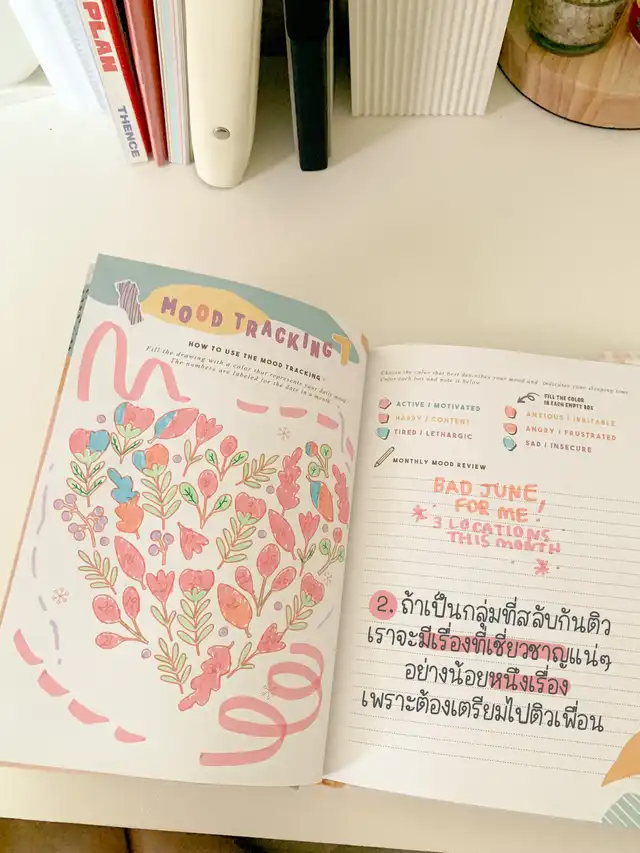 PLAN
THENCE
MOOD TRACKING
HOW TO USE THE MOOD TRACKING
Fill the drawing with a color that represents your daily mood
The numbers are labeled for the date in a month
Choose the color that best describes your mood and indicates your sleeping time
Color each box and note it below
FILL THE COLOR
IN EACH EMPTY BOX
ACTIVE / MOTIVATED
HAPPY / CONTENT
TIRED / LETHARGIC
ANXIOUS / IRRITABLE
ANGRY / FRUSTRATED
SAD / INSECURE
MONTHLY MOOD REVIEW
BAD JUNE,
FOR ME.
* 3 LOCATIONS
THIS MONTH
*
2. ถ้าเป็นกลุ่มที่สลับกันติว
เราจะมีเรื่องที่เชี่ยวชาญแน่ๆ
อย่างน้อยหนึ่งเรื่อง
เพราะต้องเตรียมไปติวเพื่อน